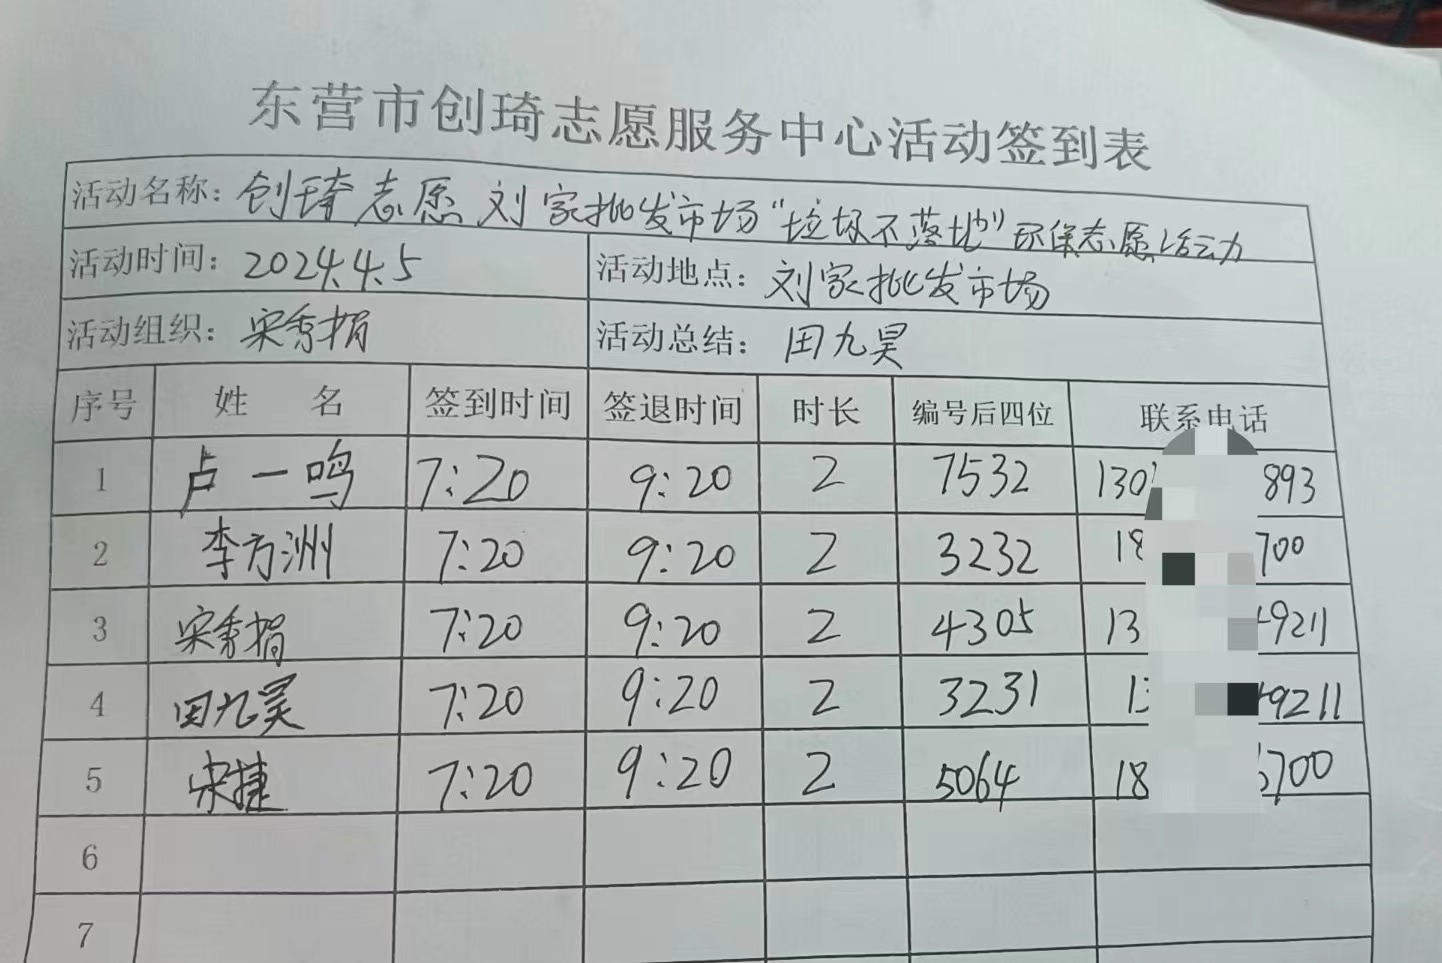 东营市创琦志愿服务中心活动签到表
活动名称：创琦志愿刘家批发市场“垃圾不落地”环保志愿活动
活动时间：2024.4.5 活动地点：刘家批发市场
活动组织：宋秀娟 活动总结：田九昊
序号 姓 名 签到时间 签退时间 时长 编号后四位 联系电话
1 卢一鸣 7:20 9:20 2 7532 130 893
2 李方洲 7:20 9:20 2 3232 18 700
3 宋秀娟 7:20 9:20 2 4305 13 9211
4 田九昊 7:20 9:20 2 3231 13 9211
5 宋捷 7:20 9:20 2 5064 18 700
6
7